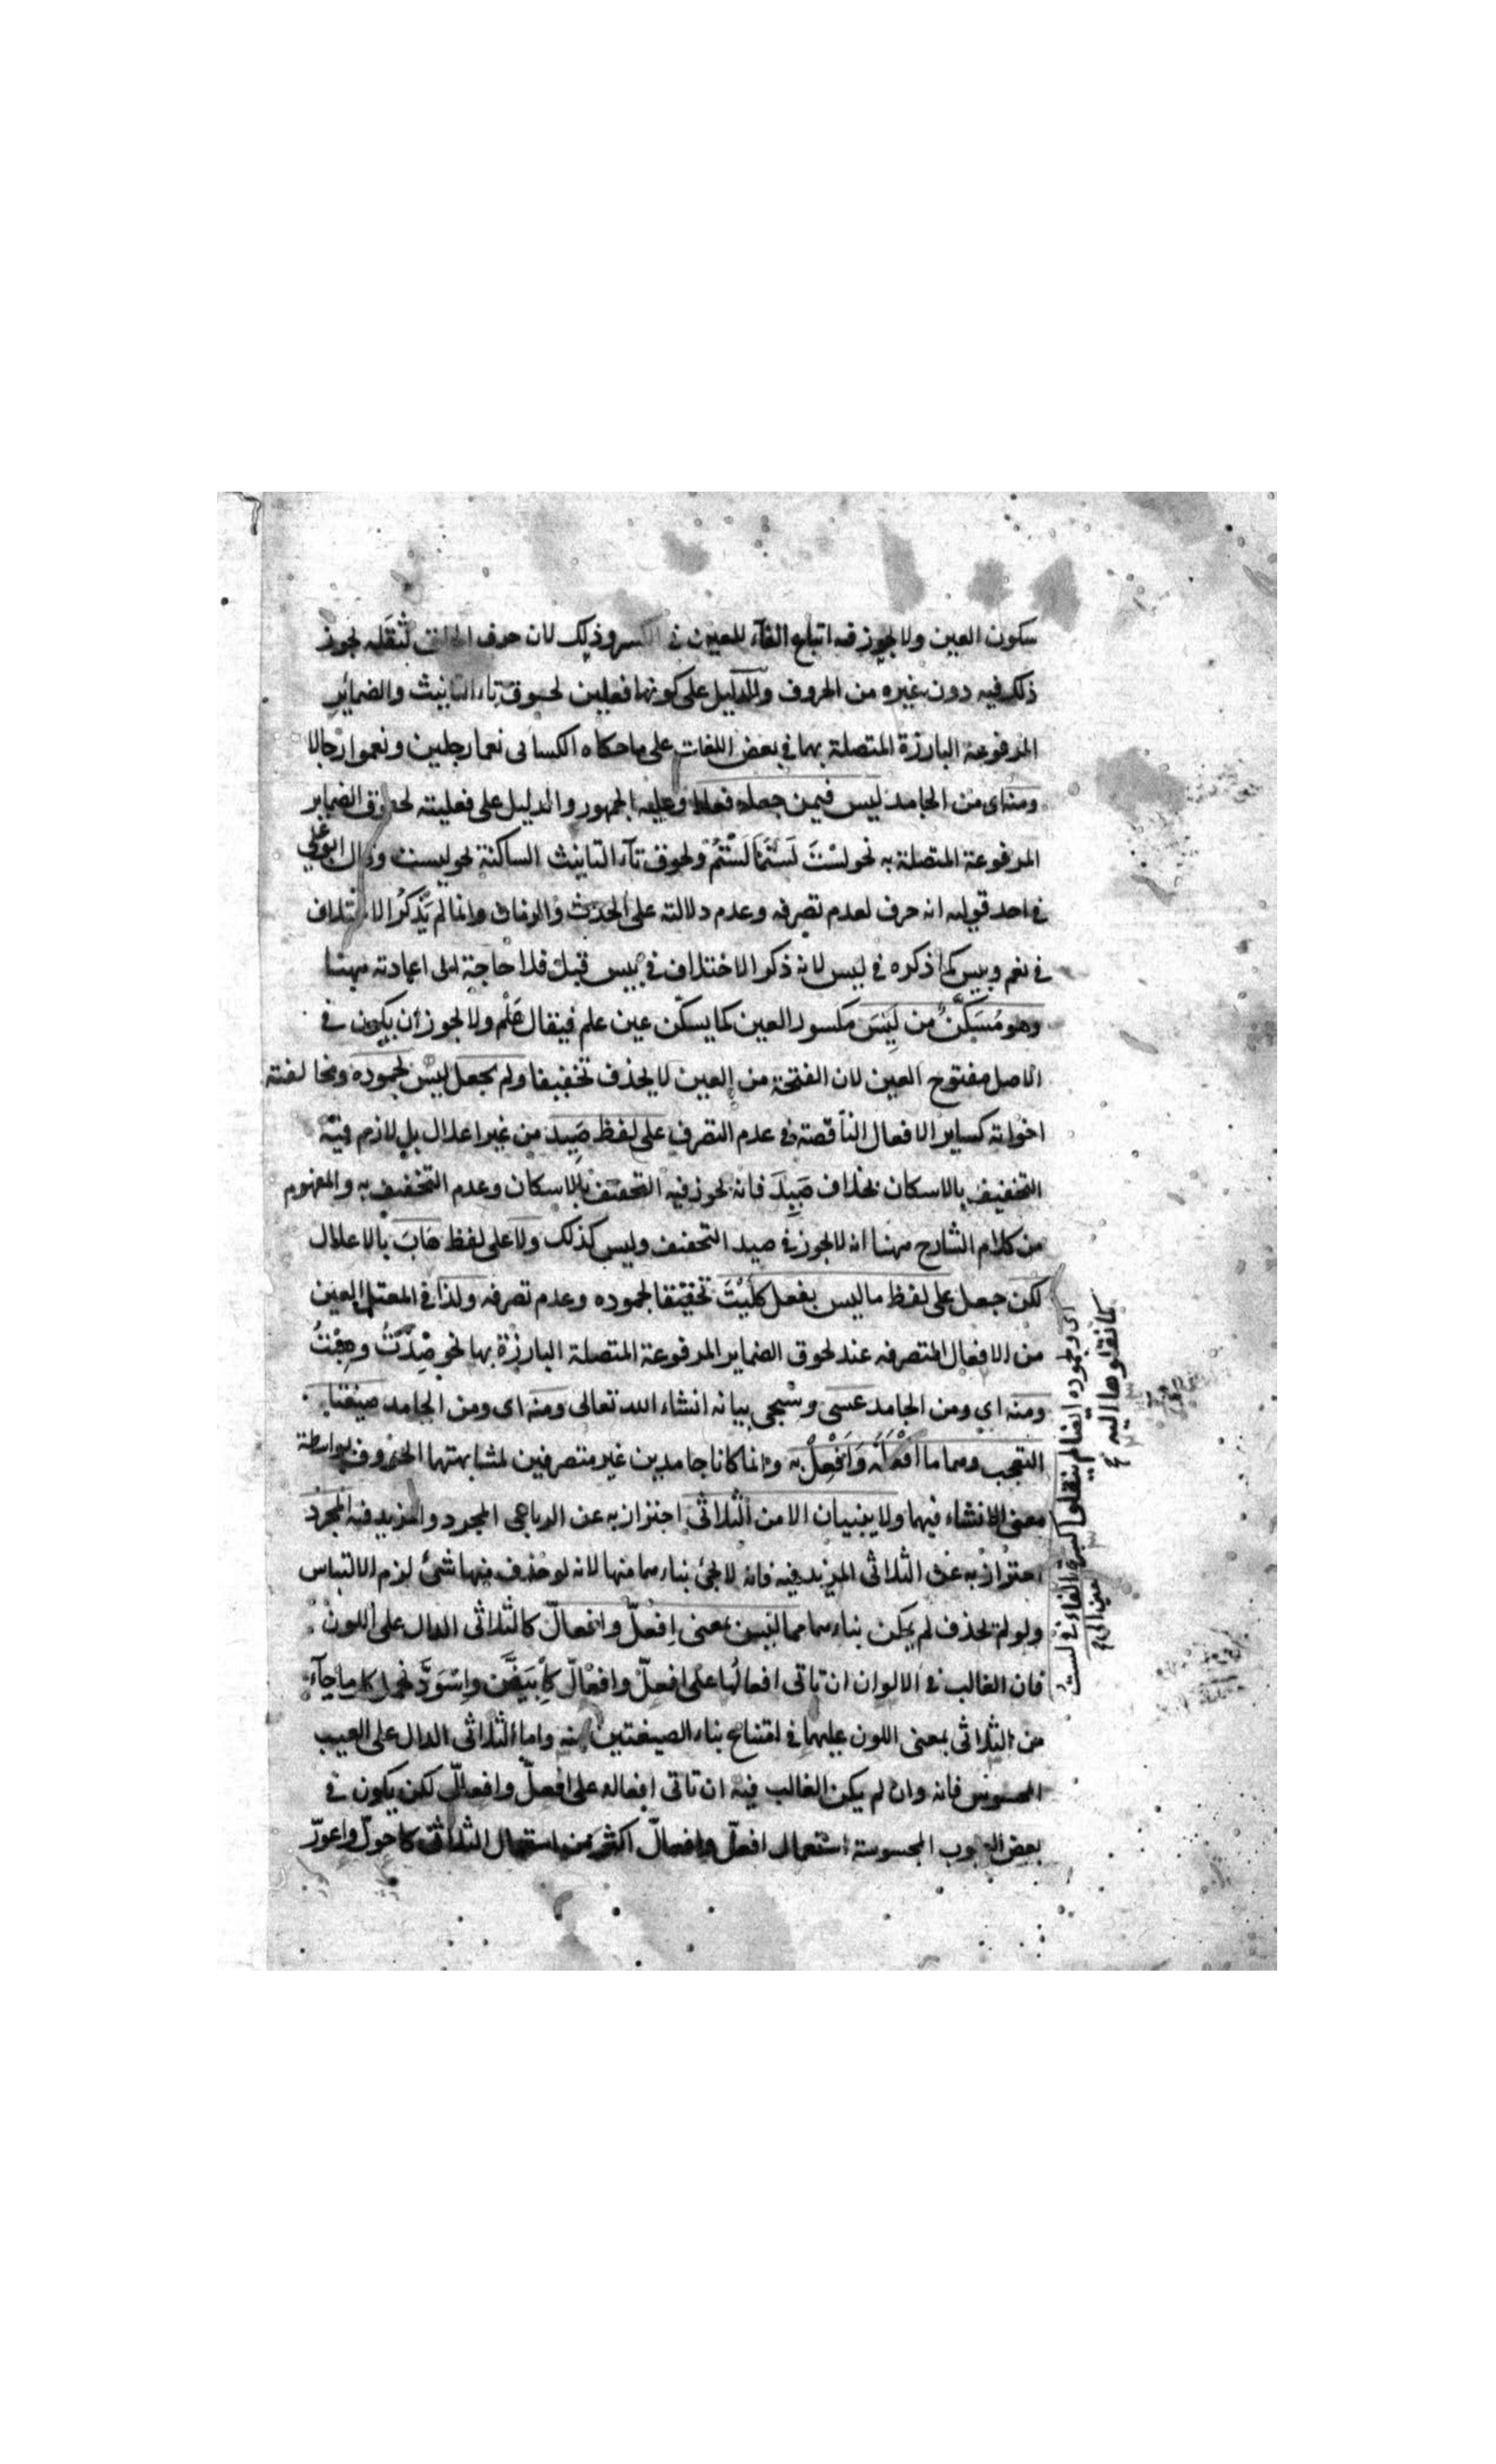 سكون العين ولا يجوز فيه اتباع الفآء للعين فى الكسر وذلك لان حرف الحلق لثقله يجوز
ذلك فيه دون غيره من الحروف والدليل على كونهما فعلين لحوق تاء التانيث والضمائر
المرفوعة البارزة المتصلة بهما فى بعض اللغات على ما حكاه الكسائى نعما رجلين ونعموا رجالا
ومنه اى من الجامد ليس فيمن جعله فعلا وعليه الجمهور والدليل على فعليته لحوق الضماير
المرفوعة المتصلة به نحو لسْتَ لَسْتُمَا لَسْتُمْ ولحوق تآء التانيث الساكنة نحو ليست وقال ابو على
فى احد قوليه انه حرف لعدم تصرفه وعدم دلالته على الحدث والزمان وانما لم يَذْكُر الاختلاف
فى نعم وبيس كما ذكره فى ليس لانه ذكر الاختلاف فى بيس قبل فلا حاجة الى اعادته ههنا
وهو مُسَكَّنٌ من لَيِسَ مكسور العين كما يسكّن عين علم فيقال عَلْم ولا يجوز ان يكون فى
الاصل مفتوح العين لان الفتحة من العين لا يحذف تخفيفا ولم يجعل ليس لجموده ومخالفته
اخواته كساير الافعال الناقصة فى عدم التصرف على لفظ صَيِدَ من غير اعلال بل لازم فيه
التخفيف بالاسكان بخلاف صَيِدَ فانه يجوز فيه التخفيف بالاسكان وعدم التخفيف به والمفهوم
من كلام الشارح ههنا انه لا يجوز فى صيد التخفيف وليس كذلك ولا على لفظ هَابَ بالاعلال
لكن جعل على لفظ ما ليس بفعل كلَيْتَ تخفيفا لجموده وعدم تصرفه ولذا فى المعتل العين
من الافعال المتصرفه عند لحوق الضماير المرفوعة المتصلة البارزة بها نحو صِدْتُ وهِبْتُ
ومنه اى ومن الجامد عسى وسيجى بيانه انشاء الله تعالى ومنه اى ومن الجامد صيغتا
التعجب وهما ما اَفْعَلَهُ وَاَفْعِلْ به وانما كانا جامدين غير متصرفين لمشابهتهما الحروف بواسطة
معنى الانشاء فيهما ولا يبنيان الا من الثلاثى احتراز به عن الرباعى المجرد والمزيد فيه المجرد
احتراز به عن الثلاثى المزيد فيه فانه لا يجئ بناءهما منها لانه لو حذف منها شئ لزم الالتباس
ولو لم يحذف لم يمكن بناءهما مما ليس بمعنى اِفْعلّ وافعالّ كالثلاثى الدال على اللون
فان الغالب فى الالوان ان تاتى افعالها على افعلّ وافعالّ كاِبْيَضَّ واسْوَدَّ فحمل كل ما جآء
من الثلاثى بمعنى اللون عليهما فى امتناع بناء الصيغتين منه واما الثلاثى الدال على العيب
المحسوس فانه وان لم يكن الغالب فيه ان تاتى افعاله على افعلّ وافعالّ لكن يكون فى
بعض العيوب المحسوسة استعمال افعلّ وافعالّ اكثر من استعمال الثلاثى كاحولّ واعورّ
اى ولجموده ايضا لم ينقلوا كسرة الفاء فى لست
كما نقلوها اليه